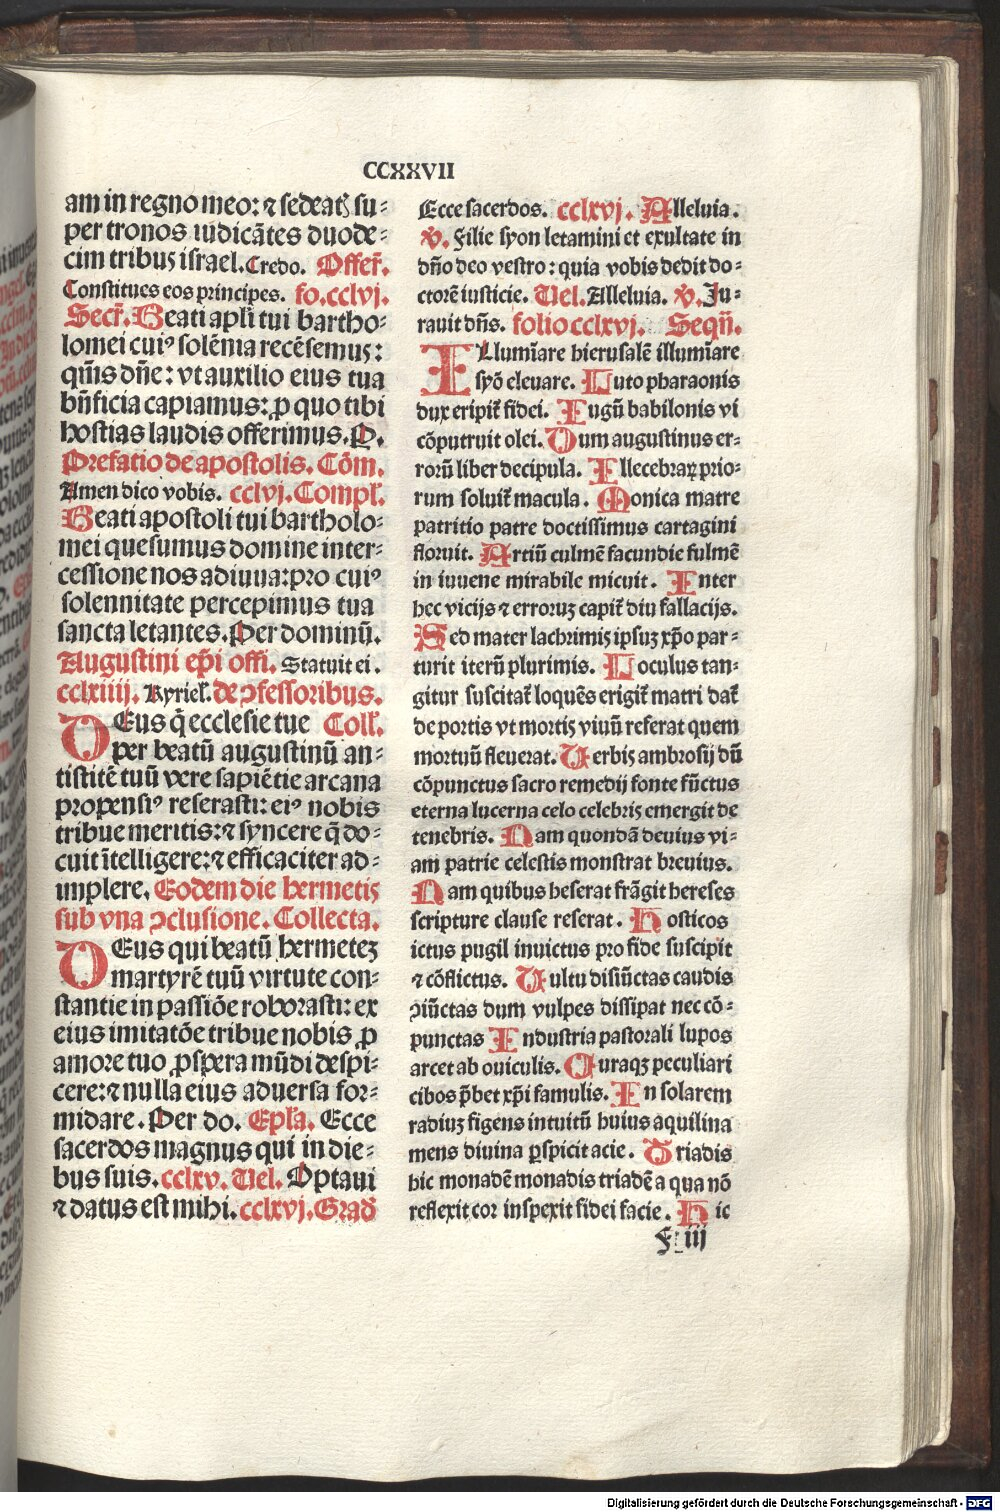 CCXXVII
am in regno meo: ⁊ sedeatꝭ su-
per tronos iudicātes duode-
cim tribus israel. Credo. Offer̄.
Constitues eos principes. fo. cclvj.
Secr̄. Beati apl̄i tui bartho-
lomei cuiꝰ solēnia recēsemus:
qm̄is dn̄e: vt auxilio eius tua
bn̄ficia capiamus: ꝓ quo tibi
hostias laudis offerimus. P.
Prefatio de apostolis. Cōm.
Amen dico vobis. cclvj. Compl̄.
Beati apostoli tui bartholo-
mei quesumus domine inter-
cessione nos adiuua: pro cuiꝰ
solennitate percepimus tua
sancta letantes. Per dominū.
Augustini ep̄i offi. Statuit ei.
cclxiiij. Kyriel̄. de ↄfessoribus.
DEus q̄ ecclesie tue Coll̄.
per beatū augustinū an-
tistitē tuū vere sapiētie arcana
propensiꝰ reserasti: eiꝰ nobis
tribue meritis: ⁊ syncere q̄ do-
cuit ītelligere: ⁊ efficaciter ad-
implere. Eodem die hermetis
sub vna ↄclusione. Collecta.
DEus qui beatū hermetez
martyrē tuū virtute con-
stantie in passiōe roborasti: ex
eius imitatōe tribue nobis ꝓ
amore tuo ꝓspera mūdi despi-
cere: ⁊ nulla eius aduersa for-
midare. Per do. Epl̄a. Ecce
sacerdos magnus qui in die-
bus suis. cclxv. Uel. Optaui
⁊ datus est mihi. cclxvj. Grad̄
Ecce sacerdos. cclxvj. Alleluia.
℣. Filie syon letamini et exultate in
dn̄o deo vestro: quia vobis dedit do-
ctorē iusticie. Uel. Alleluia. ℣. Ju-
rauit dn̄s. folio cclxvj. Seqn̄.
ILlumīare hierusalē illumīare
syō eleuare. Luto pharaonis
dux eripit̄ fidei. Fugū babilonis vi
cōputruit olei. Dum augustinus er-
rorū liber decipula. Illecebraꝝ prio-
rum soluit̄ macula. Monica matre
patritio patre doctissimus cartagini
floruit. Artiū culmē facundie fulmē
in iuuene mirabile micuit. Inter
hec vicijs ⁊ erroruꝫ capit̄ diu fallacijs.
Sed mater lachrimis ipsuꝫ xp̄o par-
turit iterū plurimis. Loculus tan-
gitur suscitat̄ loquēs erigit̄ matri dat̄
de portis vt mortis viuū referat quem
mortuū fleuerat. Uerbis ambrosij dū
cōpunctus sacro remedij fonte fūctus
eterna lucerna celo celebris emergit de
tenebris. Nam quondā deuius vi-
am patrie celestis monstrat breuius.
Nam quibus heserat frāgit hereses
scripture clause reserat. Hosticos
ictus pugil inuictus pro fide suscipit
⁊ cōflictus. Uultu disiūctas caudis
ↄiūctas dum vulpes dissipat nec cō-
punctas Industria pastorali lupos
arcet ab ouiculis. Curaqꝫ peculiari
cibos p̄bet xp̄i famulis. In solarem
radiuꝫ figens intuitū huius aquilina
mens diuina ꝑspicit acie. Triadis
hic monadē monadis triadē a qua nō
reflexit cor inspexit fidei facie. Hic
F iij
Digitalisierung gefördert durch die Deutsche Forschungsgemeinschaft - DFG